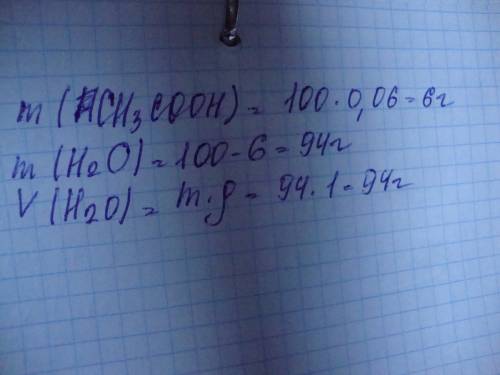 m (CH3COOH) = 100 · 0,06 = 6г
m (H2O) = 100 - 6 = 94г
V (H2O) = m · ρ = 94 · 1 = 94г